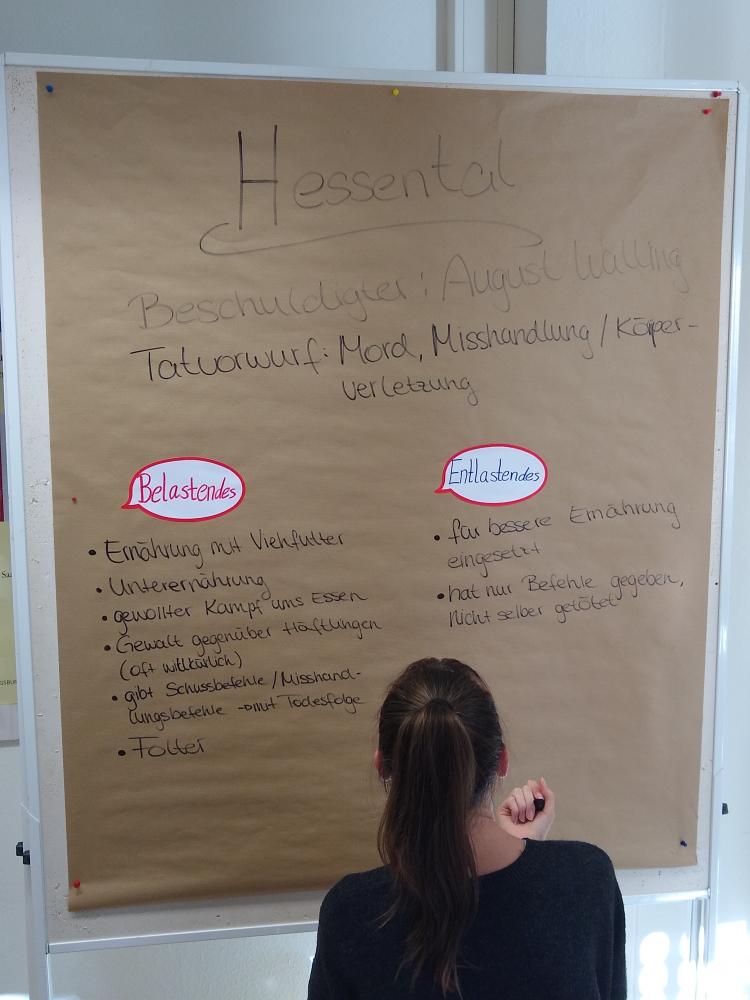 Hessental
Beschuldigter: August Walling
Tatvorwurf: Mord, Misshandlung / Körper-
verletzung
Belastendes
• Ernährung mit Viehfutter
• Unterernährung
• gewollter Kampf ums Essen
• Gewalt gegenüber Häftlingen
(oft willkürlich)
• gibt Schussbefehle / Misshand-
lungsbefehle → mit Todesfolge
• Folter
Entlastendes
• für bessere Ernährung
eingesetzt
• hat nur Befehle gegeben,
nicht selber getötet